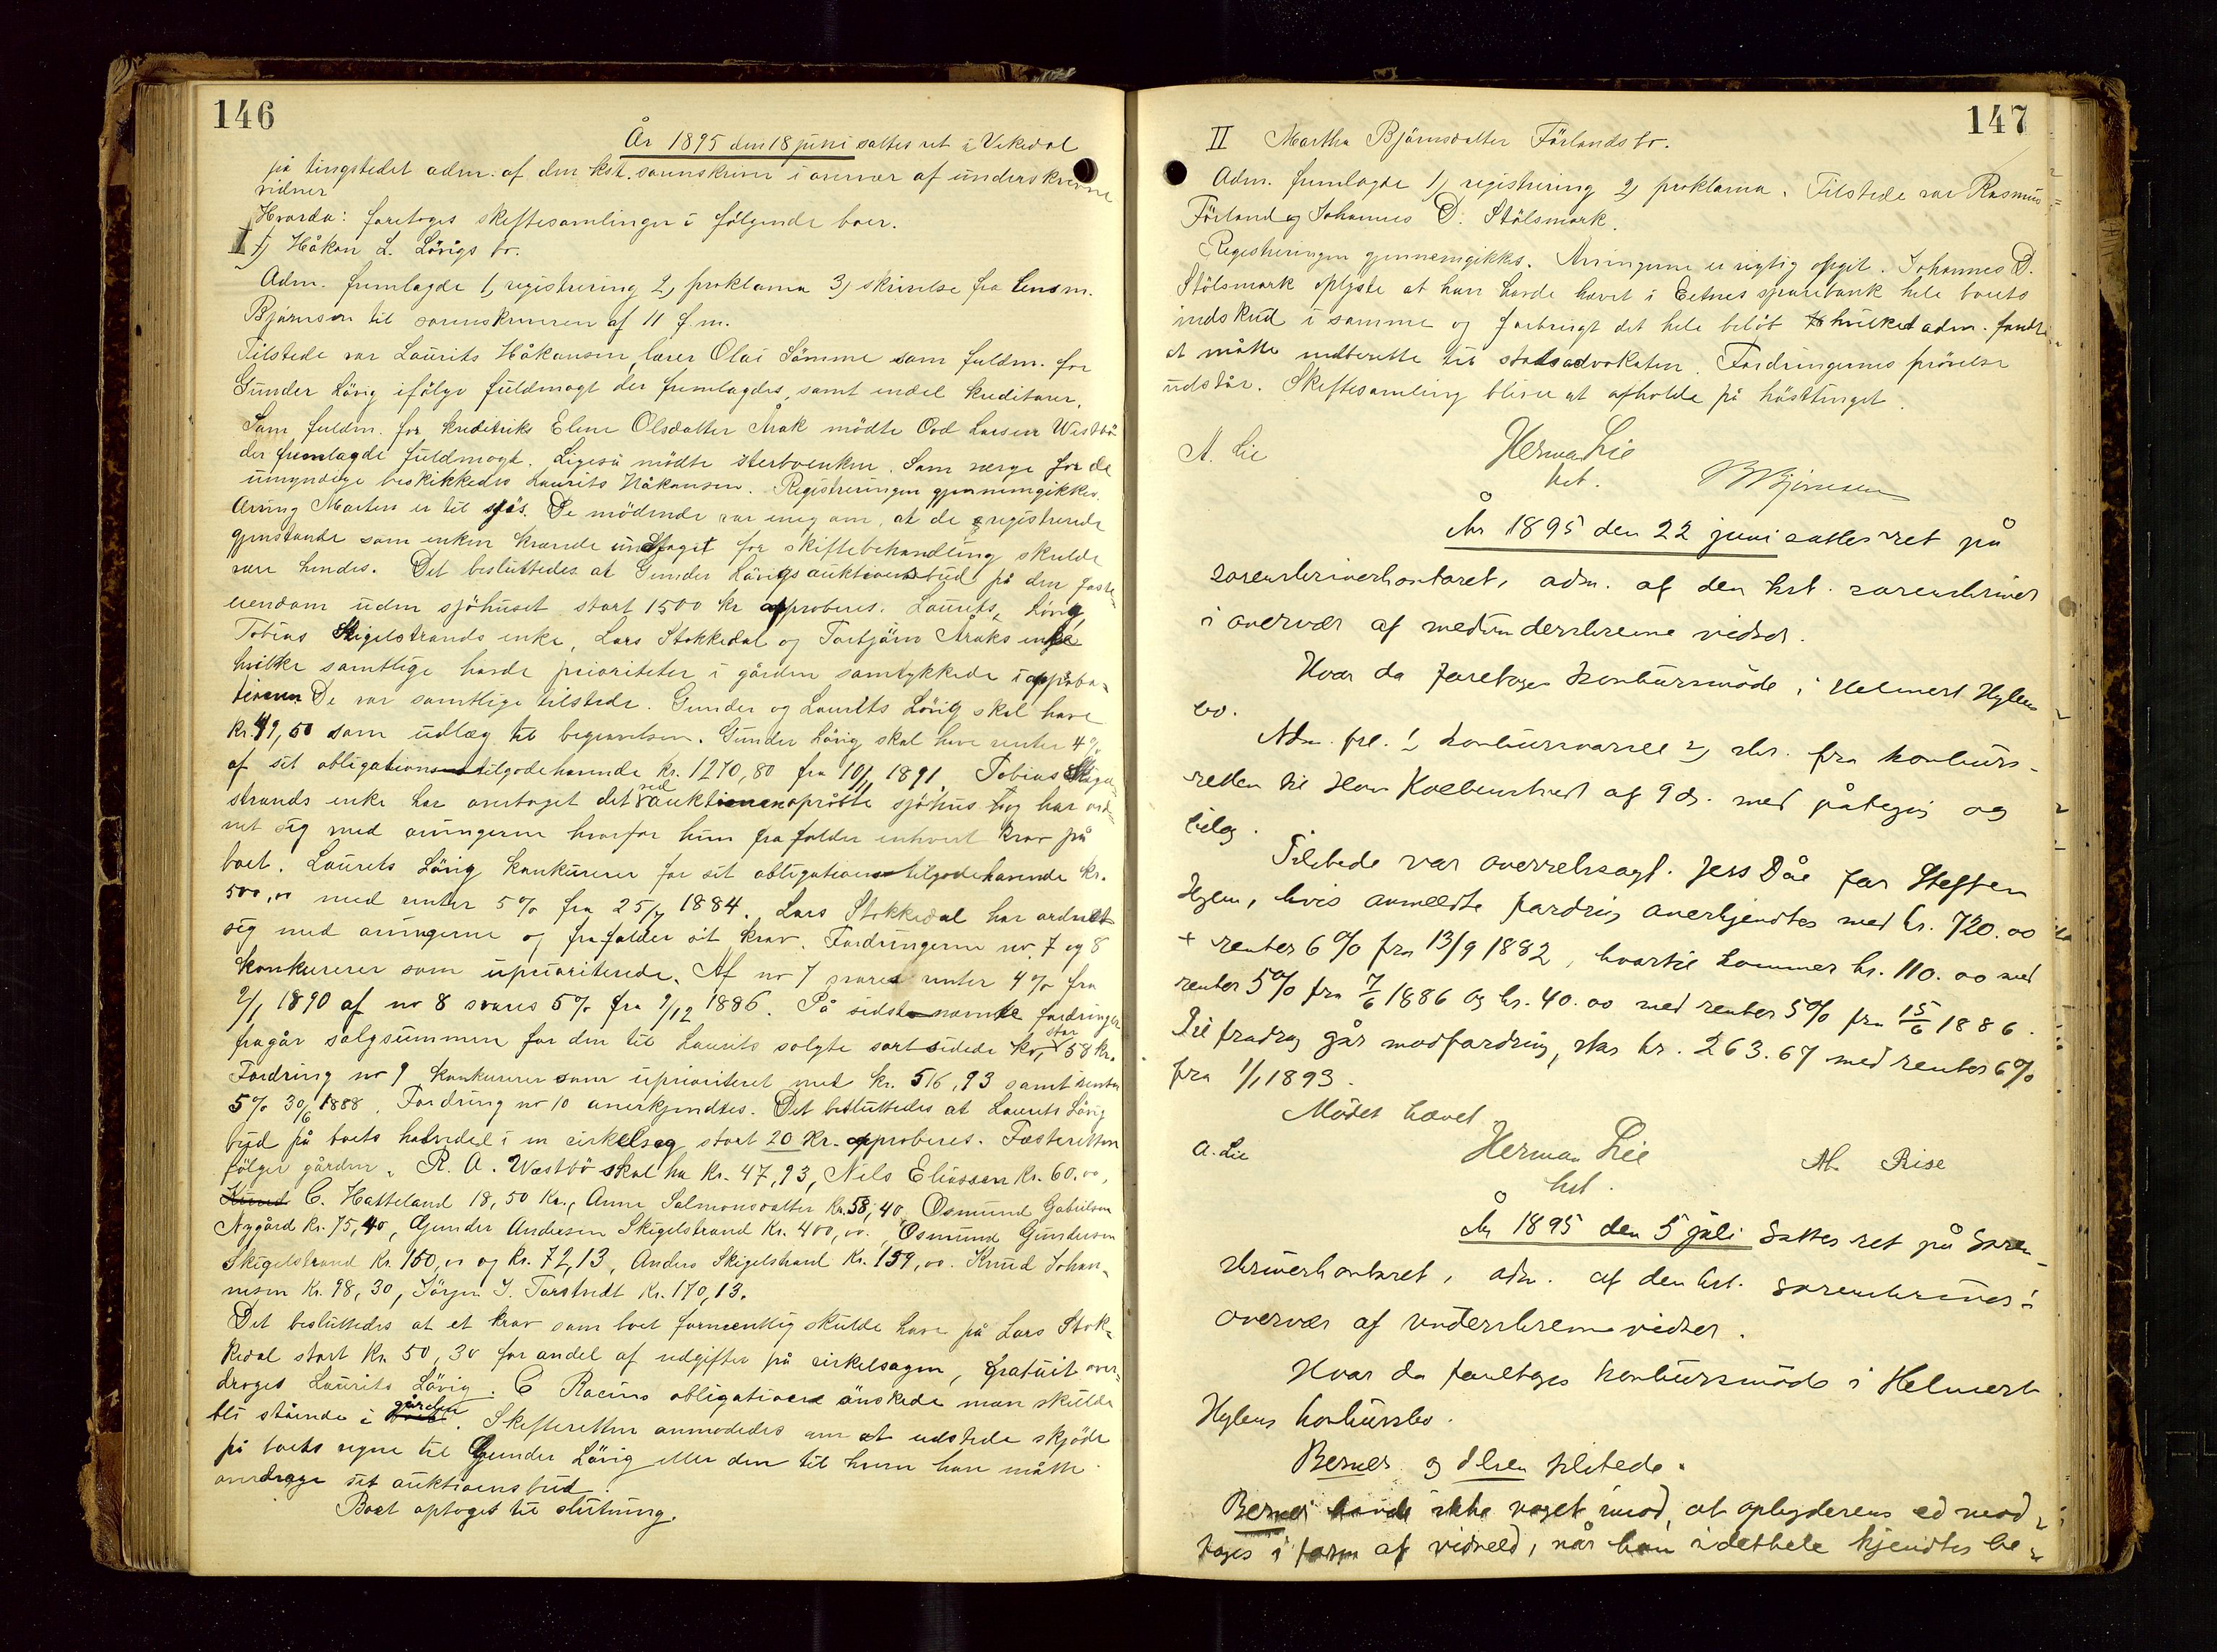 146
År 1895 den 18 juni sattes ret i Vikedal
på tingstedet adm. af den kst. sorenskriver i overvær af underskrevne
vidner
Hvorda: foretoges skiftesamlinger i følgende boer.
I Håkon L. Lövigs bo.
Adm. fremlagde 1, registrering 2, proklama 3, skrivelse fra Lensm.
Björnson til sorenskriveren af 11 f.m.
Tilstede var Laurits Håkonsen, lærer Olai Sömme som fuldm. for
Gunder Lövig ifölge fuldmagt der fremlagdes, samt endel kreditorer.
Som fuldm. for kreditriks Elene Olsdatter Årak mödte Ood Larsen Westbö
der fremlagde fuldmagt. Ligeså mödte sterboenken. Som verge for de
umyndige beskikkedes Laurits Håkonsen. Registreringen gjennemgikkes.
Arving Marten er til sjös. De mödende var enig om, at de registrerede
gjenstande som enken krævede undtaget for skiftebehandling skulde
være hendes. Det besluttedes at Gunder Lövigs auktionsbud på den faste
eiendom uden sjöhuset stort 1500 kr approberes. Laurits Lövig,
Tobias Skigelstrands enke, Lars Stokkedal og Torbjörn Åraks enke
hvilke samtlige havde prioriteter i gården samtykkede i approba-
tionen De var samtlige tilstede. Gunder og Laurits Lövig skal have
kr. 49,50 som udlæg til begravelsen. Gunder Lövig skal have renter 4%
af sit obligationstilgodehavende kr. 1270,80 fra 10/1 1891. Tobias Skigel-
strands enke har overtaget det ved auktionen opråbte sjöhus og har ord-
net sig med arvingerne hvorfor hun frafalder enhvert krav på
boet. Laurits Lövig konkurerer for sit obligationstilgodehavende kr.
500,00 med renter 5% fra 25/7 1884. Lars Stokkedal har ordnet
sig med arvingerne og frafalder sit krav. Fordringerne no. 7 og 8
konkurerer som uprioriterede. Af no 7 svares renter 4% fra
2/1 1890 af no 8 svares 5% fra 9/12 1886. På sidstnævnte fordringer
fragår salgsummen for den til Laurits solgte sortsidede ko, stor 58 kr.
Fordring no 9 konkurerer som uprioriteret med kr. 516,93 samt renter
5% 30/6 1888. Fordring no 10 anerkjendtes. Det besluttedes at Laurits Lövig
bud på boets halvedel i en cirkelsag stort 20 kr. approberes. Fæsteretten
fölger gården. R. A. Westbö skal ha kr. 47,93, Nils Eliassen kr. 60.00,
Knud C. Hatteland 18,50 kr., Anne Salmonsdatter kr. 58,40 Osmund Gabrielsen
Nygård kr. 75,40, Gunder Andersen Skigelstrand kr. 400,00., Osmund Gundersen
Skigelstrand kr. 150,00 og kr. 72,13, Anders Skigelstrand kr. 159,00. Knud Johan-
nesen kr. 98,30, Jörgen J. Torstvedt kr. 170,13.
Det besluttedes at et krav som boet formentlig skulde have på Lars Stok-
kedal stort kr. 50,30 for andel af udgifter på cirkelsagen, gratuit over-
droges Laurits Lövig. C Racins obligation önskede man skulde
bli stående i gården. Skifteretten anmodedes om at udstede skjöde
på boets vegne til Gunder Lövig eller den til hvem han måtte
overdrage sit auktionsbud.
Boet optoges til slutning.
147
II Martha Björnsdatter Förlands bo.
Adm. fremlagde 1, registrering 2, proklama. Tilstede var Rasmus
Förland og Johannes D. Stölsmark.
Registreringen gjennemgikkes. Arvingerne er rigtig opgit. Johannes D.
Stölsmark oplyste at han havde hævet i Eetnes sparebank hele boets
indskud i samme og forbrugt det hele belöb hvilket adm. fandt
at måtte indberette til statsadvokaten. Fordringernes prövelse
udstår. Skiftesamling bliver at afholde på hösttinget.
A. Lie
Herman Lie
kst.
B Björnsen
År 1895 den 22 juni sattes ret på
sorenskriverkontoret, adm. af den kst. sorenskriver
i overvær af medunderskrevne vidner.
Hvor da foretoges konkursmöde i Helmert Hylens
bo.
Adm. frl. 1, konkursvarsel 2, skr. fra konkurs-
retten til Hans Kolbenstvedt af 9 ds. med påtegn. og
bilag.
Tilstede var overretssagf. Jess Dåe for Steffen
Hylen, hvis anmeldte fordring anerkjendtes med kr. 720.00
+ renter 6% fra 13/9 1882, hvortil kommer kr. 110.00 med
renter 5% fra 7/6 1886 og kr. 40.00 med renter 5% fra 15/6 1886.
Til fradrag går modfordring, stor kr. 263.67 med renter 6%
fra 1/1 1893.
Mödet hævet.
A. Lie
Herman Lie
kst.
M. Rise
År 1895 den 5 juli sattes ret på Soren-
skriverkontoret, adm. af den kst. sorenskriver i
overvær af underskrevne vidner.
Hvor da foretoges konkursmöde i Helmert
Hylens konkursbo.
Berner og Olsen tilstede.
Berner havde ikke noget imod, at opbyderens ed mod-
toges i form af vidneed, når han i dethele kjendtes be-